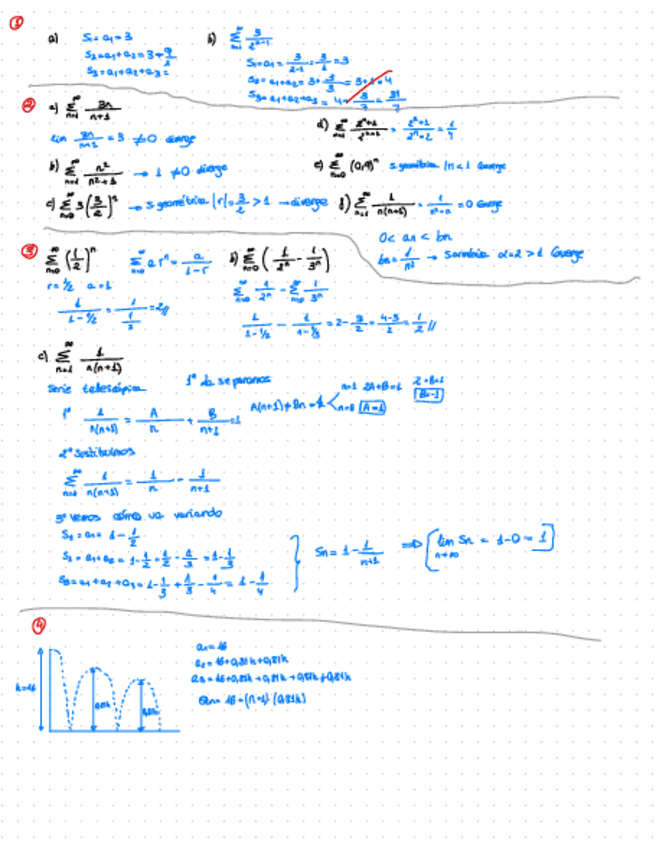 ①
a) S₁ = a₁ = 3
S₂ = a₁ + a₂ = 3 +
S₃ = a₁ + a₂ + a₃ =
b) ∑ n=1 ∞ 3/2ⁿ⁻¹
S₁ = a₁ = = 3
S₂ = a₁ + a₂ = 3 + = 4
S₃ = a₁ + a₂ + a₃ = 4
②
a) ∑ n=1 ∞ 3n/n+1
lim 3n/n+1 = 3 ≠ 0 diverge
b) ∑ n=1 ∞ n²/n²+1 → 1 ≠ 0 diverge
c) ∑ n=0 ∞ 3(3/2)ⁿ → s geométrica |r| = 3/2 > 1 → diverge
d) ∑ n=1 ∞
e) ∑ n=0 ∞ (0,9)ⁿ s geométrica |r| < 1 Converge
f) ∑ n=1 ∞ 1/n(n+1) = 1/n²+n = 0 Converge
0 < an < bn
bn = 1/n² → α=2 > 1 Converge
③
∑ n=0 ∞ (1/2)ⁿ ∑ n=0 ∞ a rⁿ = a/1-r
r = 1/2 a = 1
1/1-1/2 = = 2//
b) ∑ n=0 ∞ (1/2ⁿ - 1/3ⁿ)
∑ n=0 ∞ 1/2ⁿ - ∑ n=0 ∞ 1/3ⁿ
1/1-1/2 - 1/1-1/3 = 2 - 3/2 = 4-3/2 = 1/2 //
c) ∑ n=1 ∞ 1/n(n+1)
Serie telescópica 1º la separamos
1º 1/n(n+1) = A/n + B/n+1 = 1 A(n+1) + Bn = 1 n=1 2A+B=1 2+B=1 B=-1
n=0 A=1
2º sustituimos
∑ n=1 ∞ 1/n(n+1) = 1/n - 1/n+1
3º vemos cómo va variando
S₁ = a₁ = 1 - 1/2
S₂ = a₁ + a₂ = 1 - 1/2 + 1/2 - 1/3 = 1 - 1/3
S₃ = a₁ + a₂ + a₃ = 1 - 1/3 + 1/3 - 1/4 = 1 - 1/4
Sn = 1 - 1/n+1 ⟹ [lim n→∞ Sn = 1-0 = 1]
④
h=16
0,81h
a₁ = 16
a₂ = 16 + 0,81h + 0,81h
a₃ = 16 + 0,81h + 0,81h + 0,81h + 0,81h
an = 16 + (n+1) (0,81h)